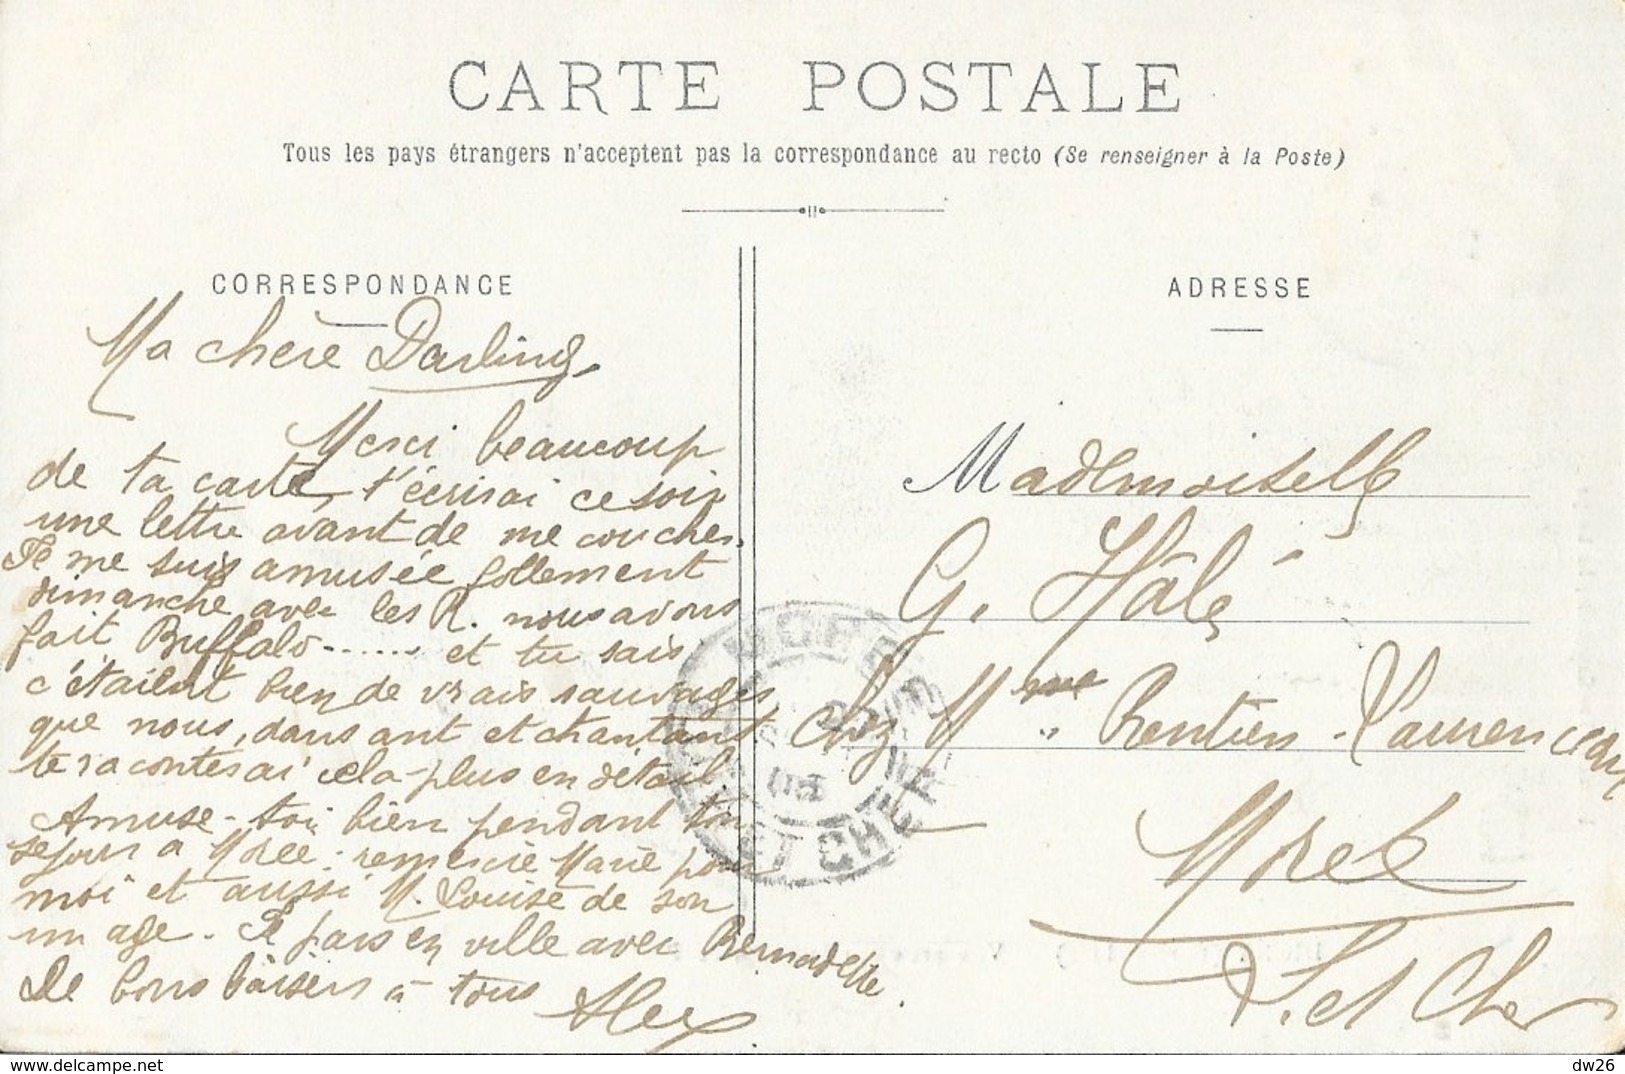 CARTE POSTALE
Tous les pays étrangers n'acceptent pas la correspondance au recto (Se renseigner à la Poste)
CORRESPONDANCE
Ma chère Darling,
Merci beaucoup
de ta carte, t'écrirai ce soir
une lettre avant de me coucher.
Je me suis amusée follement
dimanche avec les R. nous avons
fait Buffalo ...... et tu sais
c'étaient bien de vrais sauvages
que nous, dansant et chantant,
te raconterai cela plus en détail
Amuse-toi bien pendant ton
séjour à Morée. remercie Marie pour
moi et aussi M. Louise de son
image. Je pars en ville avec Bernadette.
De bons baisers à tous Alex
ADRESSE
Mademoiselle
G. Hâlé
chez Mme Rentien-Laurenceau
Morée
L. et Cher
ET CHER
dw26